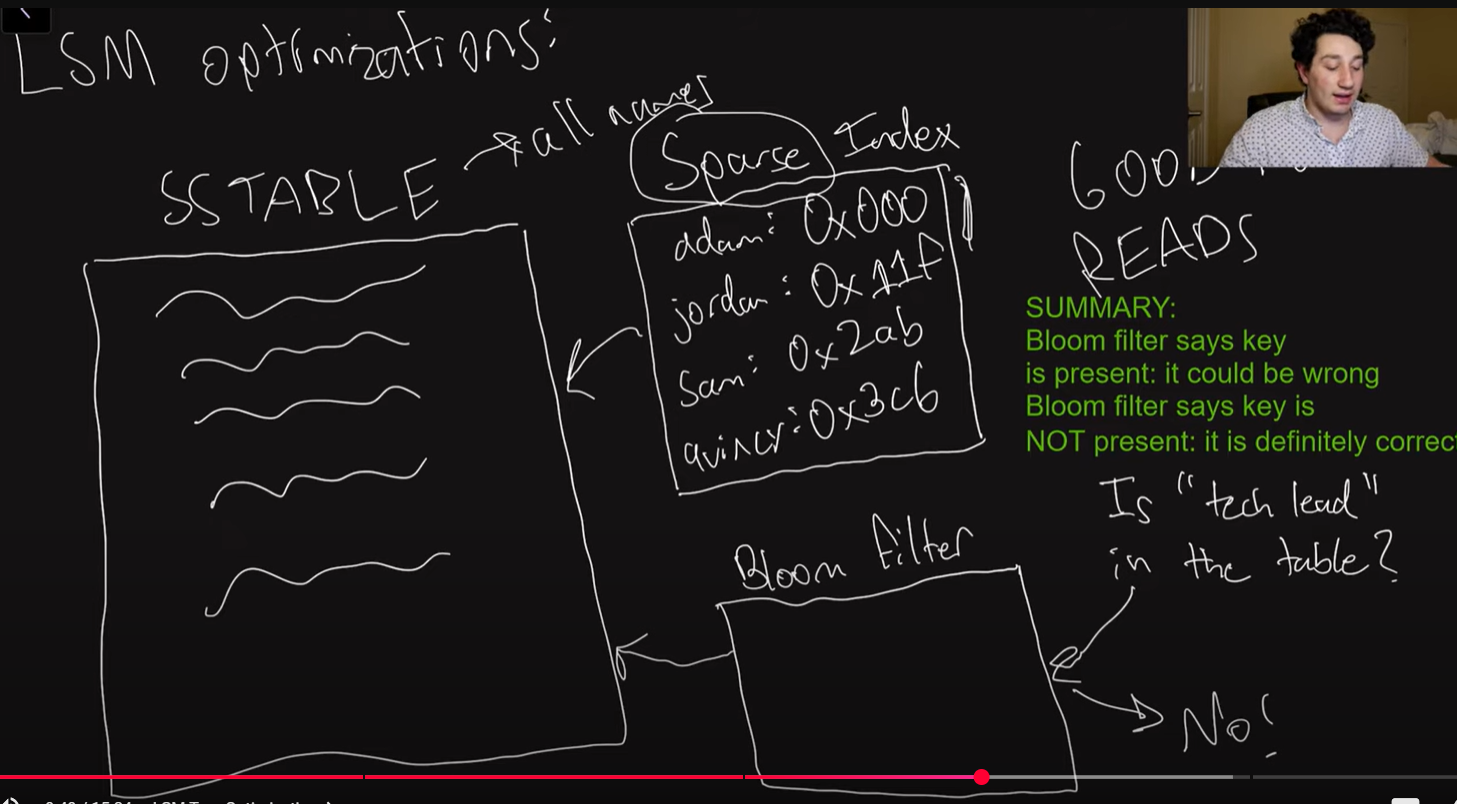 LSM optimizations:
SSTABLE
all names
Sparse Index
adam: 0x000
jordan: 0x11f
Sam: 0x2ab
quincy: 0x3c6
READS
SUMMARY:
Bloom filter says key
is present: it could be wrong
Bloom filter says key is
NOT present: it is definitely correct
Is "tech lead"
in the table?
Bloom Filter
No!